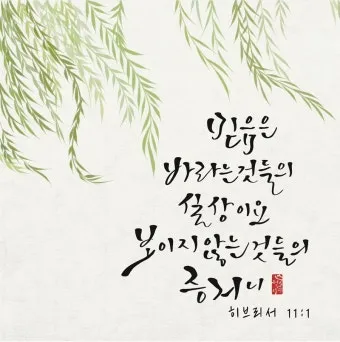 믿음은
바라는것들의
실상이요
보이지않는것들의
증거니
히브리서 11:1